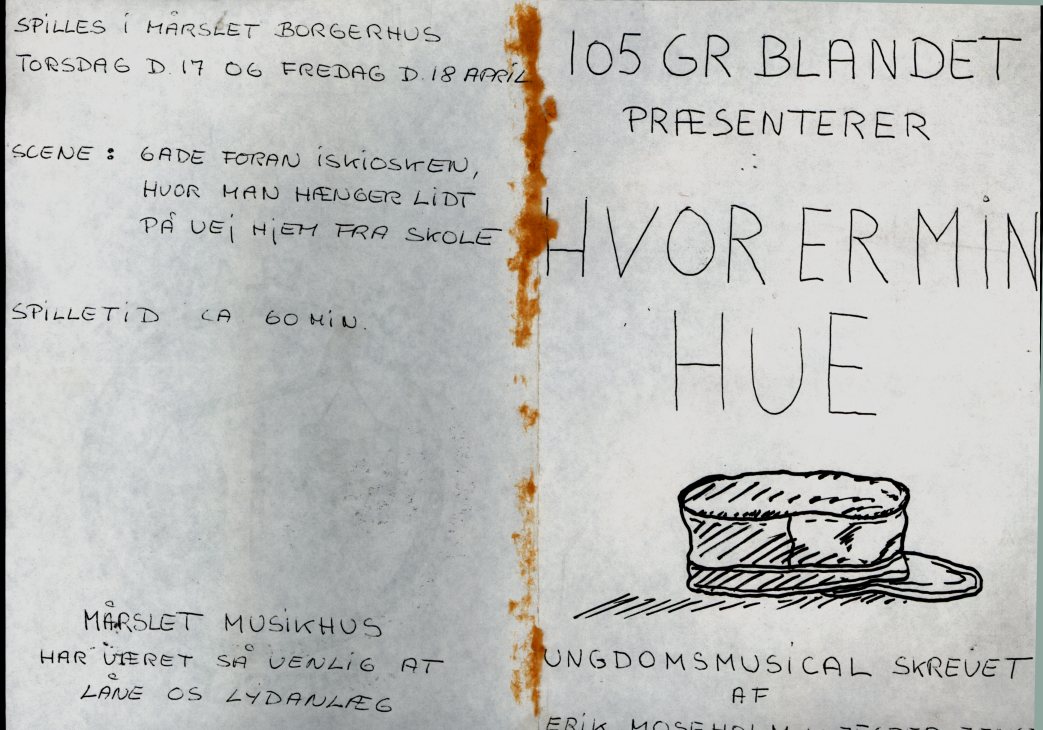 SPILLES I MÅRSLET BORGERHUS
TORSDAG D. 17 OG FREDAG D. 18 APRIL
SCENE : GADE FORAN ISKIOSKEN,
HVOR MAN HÆNGER LIDT
PÅ VEJ HJEM FRA SKOLE
SPILLETID CA 60 MIN.
MÅRSLET MUSIKHUS
HAR VÆRET SÅ VENLIG AT
LÅNE OS LYDANLÆG
105 GR BLANDET
PRÆSENTERER
HVOR ER MIN
HUE
UNGDOMSMUSICAL SKREVET
AF
ERIK MOSEHOLM